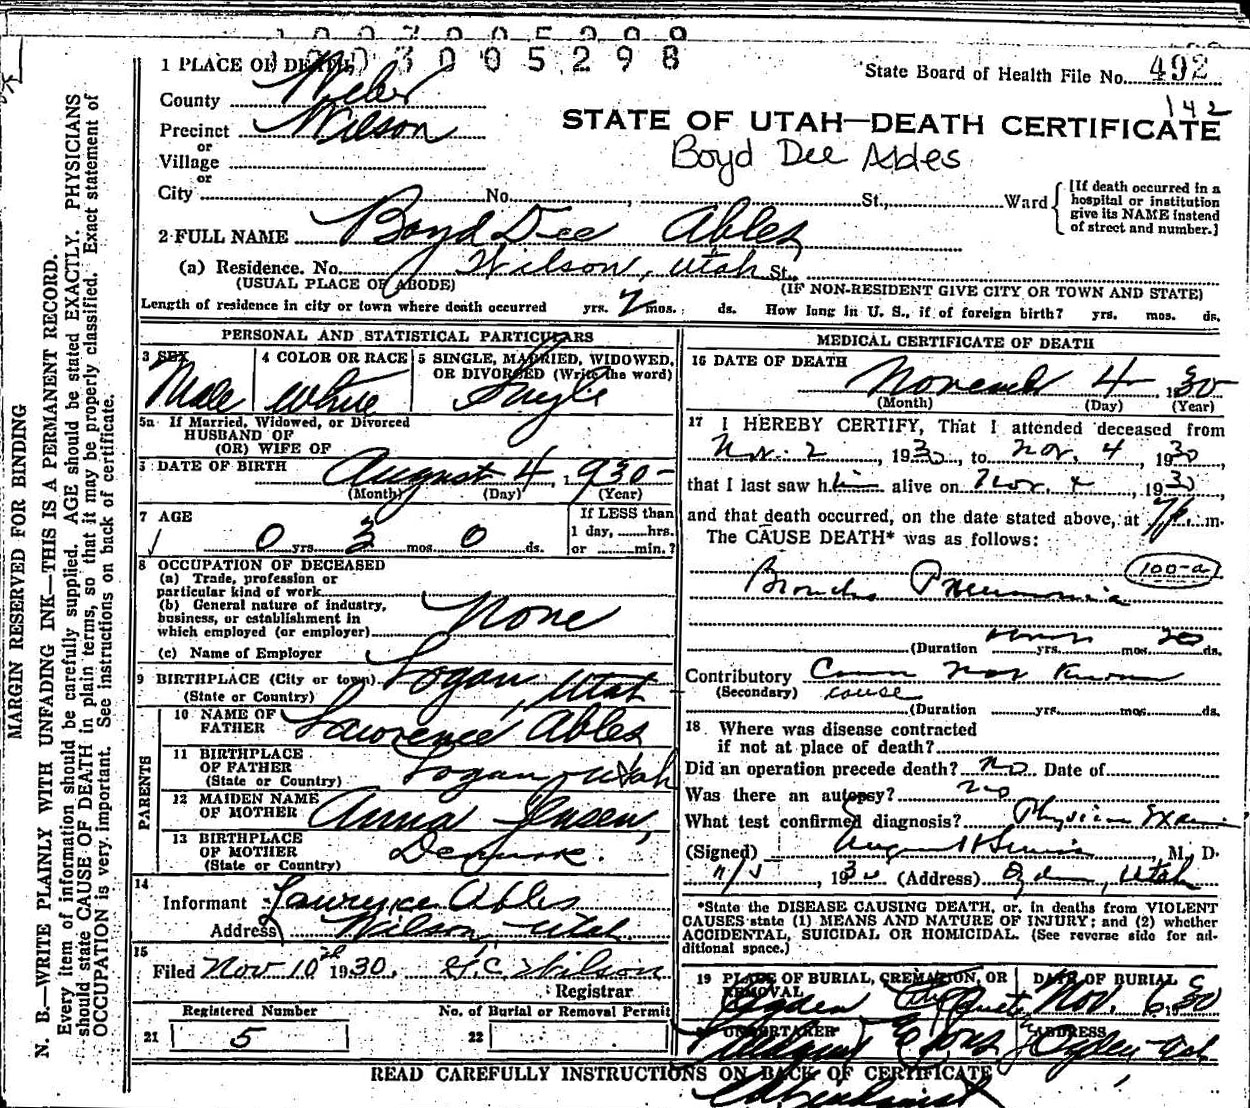 1930005298
1 PLACE OF DEATH
County Weber
Precinct Wilson
or
Village
or
City No. St., Ward
State Board of Health File No. 492
142
STATE OF UTAH—DEATH CERTIFICATE
Boyd Dee Ables
[If death occurred in a
hospital or institution
give its NAME instead
of street and number.]
2 FULL NAME Boyd Dee Ables
(a) Residence. No. Wilson, Utah St.,
(USUAL PLACE OF ABODE) (IF NON-RESIDENT GIVE CITY OR TOWN AND STATE)
Length of residence in city or town where death occurred yrs. 2 mos. ds. How long in U. S., if of foreign birth? yrs. mos. ds.
PERSONAL AND STATISTICAL PARTICULARS
3 SEX Male
4 COLOR OR RACE White
5 SINGLE, MARRIED, WIDOWED,
OR DIVORCED (Write the word)
Single
5a If Married, Widowed, or Divorced
HUSBAND OF
(OR) WIFE OF
DATE OF BIRTH August 4, 1930
(Month) (Day) (Year)
7 AGE
0 yrs. 3 mos. 0 ds.
If LESS than
1 day, hrs.
or min.?
8 OCCUPATION OF DECEASED
(a) Trade, profession or
particular kind of work
(b) General nature of industry,
business, or establishment in
which employed (or employer) None
(c) Name of Employer
9 BIRTHPLACE (City or town) Logan, Utah
(State or Country)
PARENTS
10 NAME OF
FATHER Lawrence Ables
11 BIRTHPLACE
OF FATHER Logan, Utah
(State or Country)
12 MAIDEN NAME
OF MOTHER Anna Jensen,
13 BIRTHPLACE
OF MOTHER Denmark.
(State or Country)
14
Informant Lawrence Ables
Address Wilson, Utah
15
Filed Nov 10th 1930. Wilson
Registrar
Registered Number No. of Burial or Removal Permit
21 5 22
MEDICAL CERTIFICATE OF DEATH
16 DATE OF DEATH November 4 1930
(Month) (Day) (Year)
17 I HEREBY CERTIFY, That I attended deceased from
Nov. 2, 1930, to Nov. 4, 1930
that I last saw him alive on Nov. 4, 1930,
and that death occurred, on the date stated above, at m.
The CAUSE DEATH* was as follows:
100-a
Broncho Pneumonia
(Duration yrs. mos. 20 ds.
Contributory Not Known
(Secondary) cause
(Duration yrs. mos. ds.
18 Where was disease contracted
if not at place of death?
Did an operation precede death? No Date of
Was there an autopsy? No
What test confirmed diagnosis? Physician Exam
(Signed) M. D.
, 1930 (Address) Ogden, Utah
*State the DISEASE CAUSING DEATH, or, in deaths from VIOLENT
CAUSES state (1) MEANS AND NATURE OF INJURY; and (2) whether
ACCIDENTAL, SUICIDAL OR HOMICIDAL. (See reverse side for ad-
ditional space.)
19 PLACE OF BURIAL, CREMATION, OR
REMOVAL
Ogden City
DATE OF BURIAL
Nov. 6, 1930
UNDERTAKER
ADDRESS
Ogden
READ CAREFULLY INSTRUCTIONS ON BACK OF CERTIFICATE
MARGIN RESERVED FOR BINDING
N. B.—WRITE PLAINLY WITH UNFADING INK—THIS IS A PERMANENT RECORD.
Every item of information should be carefully supplied. AGE should be stated EXACTLY. PHYSICIANS
should state CAUSE OF DEATH in plain terms, so that it may be properly classified. Exact statement of
OCCUPATION is very important. See instructions on back of certificate.